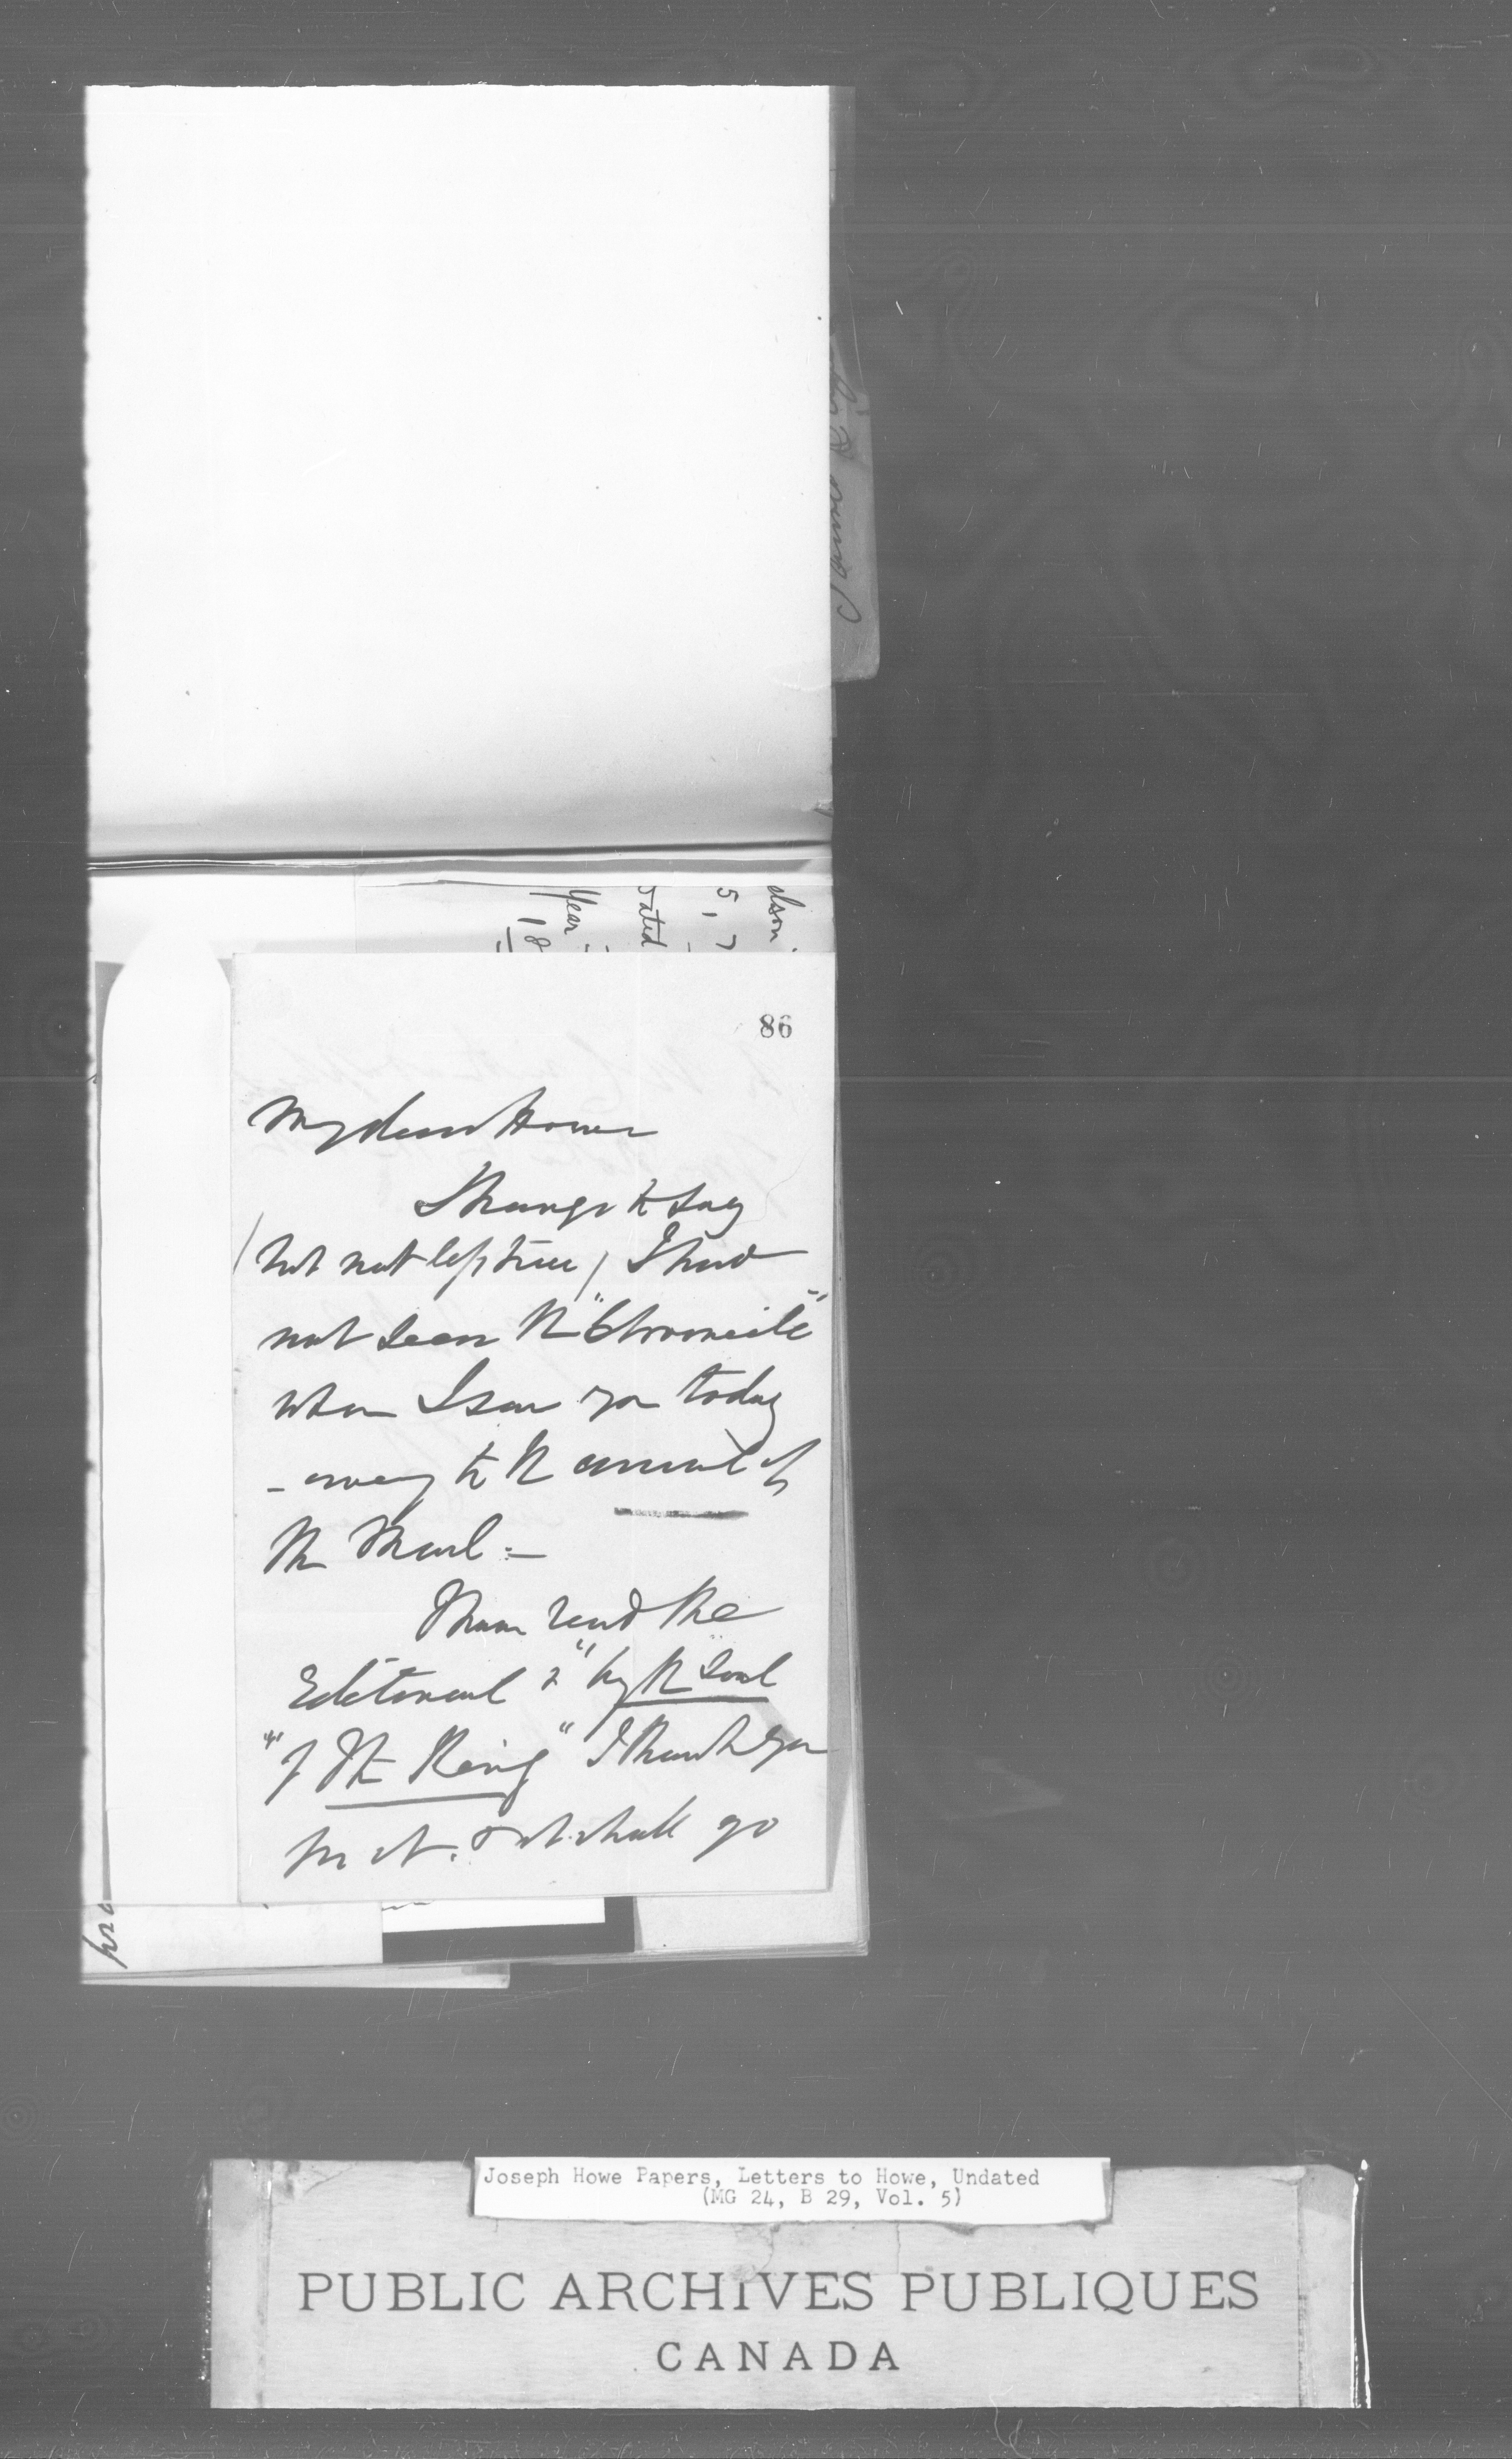 elson
5, 7
Dated
Year
18
86
My dear Howe
Strange to say
/ but not less true / I had
not seen the "Chronicle"
when I saw you today
- owing to the arrival of
the Mail -
I have read the
Editorial & "by the soul
" of the King" I thank you
for it. & it shall go
Joseph Howe Papers, Letters to Howe, Undated
(MG 24, B 29, Vol. 5)
PUBLIC ARCHIVES PUBLIQUES
CANADA